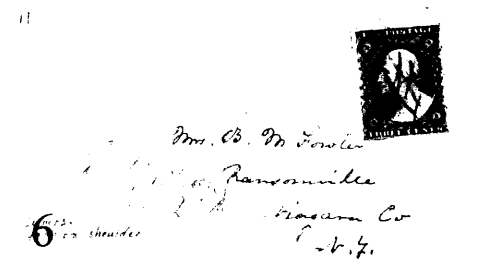 11
POSTAGE
THREE CENTS
Mrs. B. M Fowler
Ransomville
Niagara Co
N.Y.
6
on shoulder